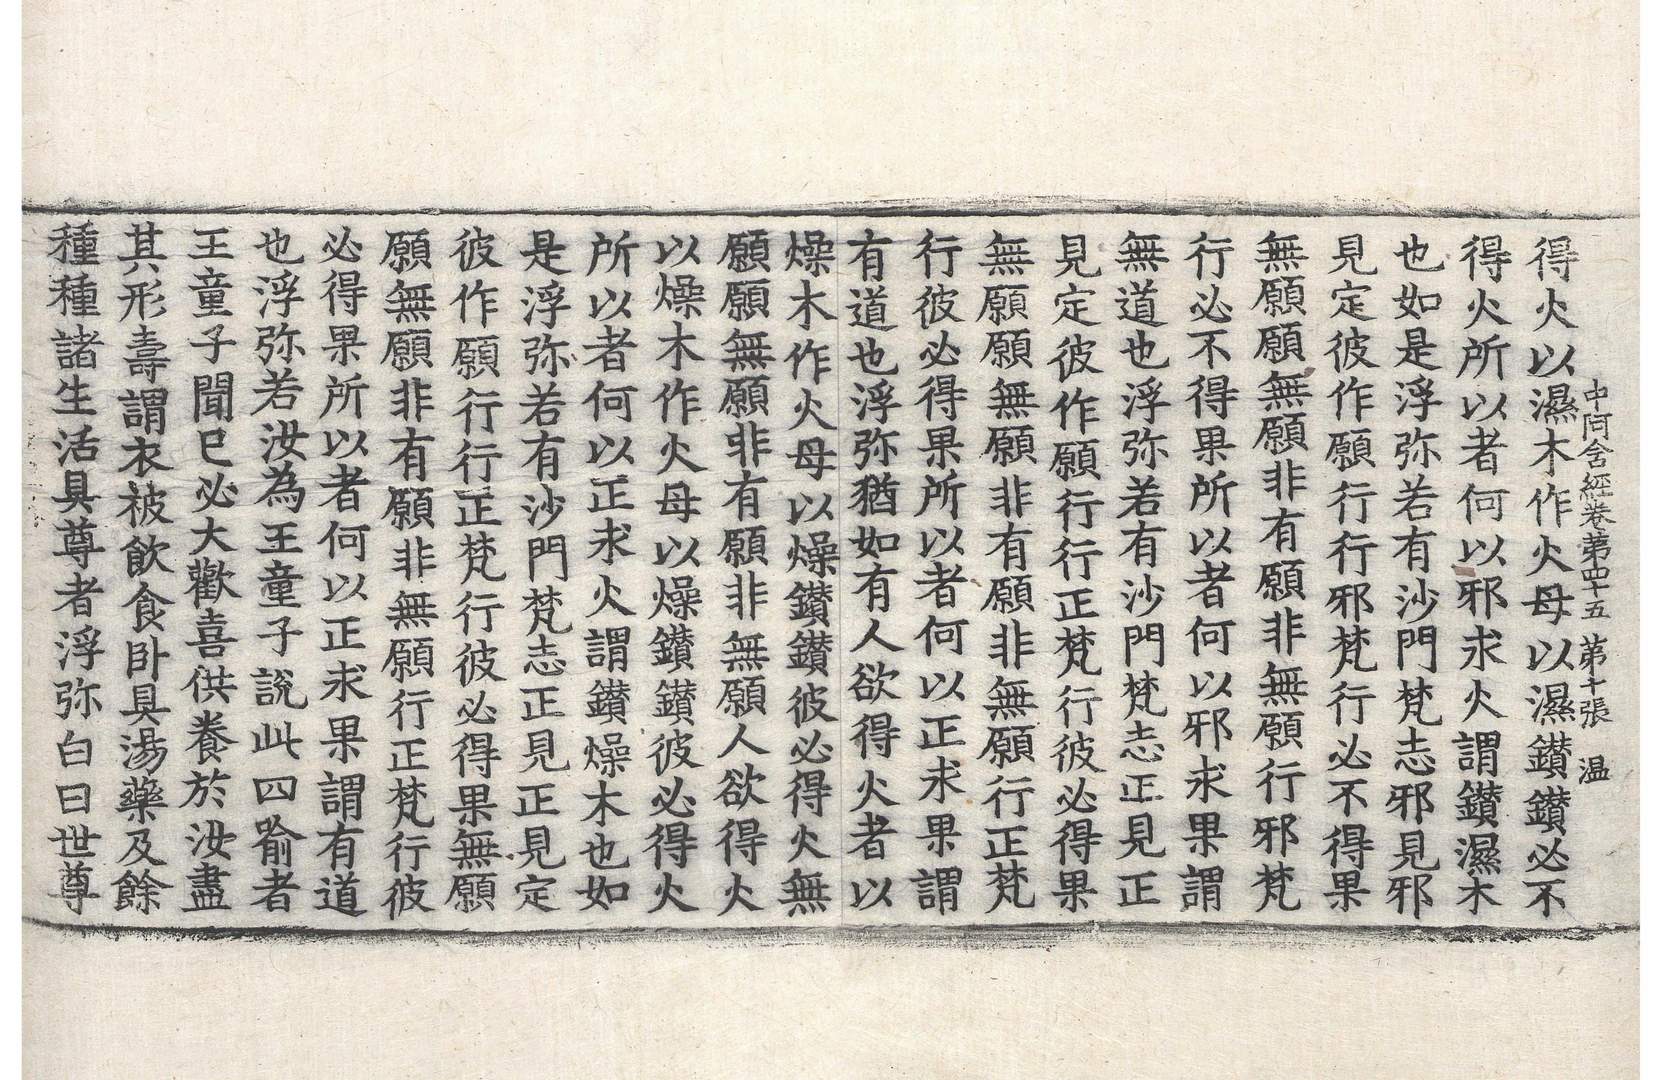 中阿含經卷第四十五 第十張 温
得火以濕木作火母以濕鑚鑚必不
得火所以者何以邪求火謂鑚濕木
也如是浮弥若有沙門梵志邪見邪
見定彼作願行行邪梵行必不得果
無願願無願非有願非無願行邪梵
行必不得果所以者何以邪求果謂
無道也浮弥若有沙門梵志正見正
見定彼作願行行正梵行彼必得果
無願願無願非有願非無願行正梵
行彼必得果所以者何以正求果謂
有道也浮弥猶如有人欲得火者以
燥木作火母以燥鑚鑚彼必得火無
願願無願非有願非無願人欲得火
以燥木作火母以燥鑚鑚彼必得火
所以者何以正求火謂鑚燥木也如
是浮弥若有沙門梵志正見正見定
彼作願行行正梵行彼必得果無願
願無願非有願非無願行正梵行彼
必得果所以者何以正求果謂有道
也浮弥若汝為王童子說此四喻者
王童子聞已必大歡喜供養於汝盡
其形壽謂衣被飲食卧具湯藥及餘
種種諸生活具尊者浮弥白曰世尊